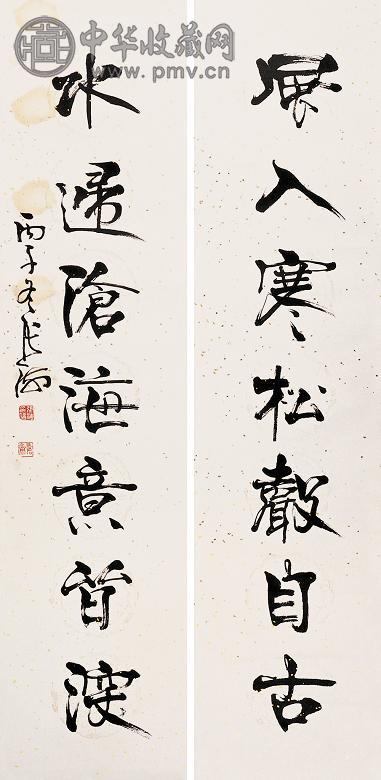 中华收藏网
www.pmv.cn
風入寒松聲自古
水歸滄海意皆深
丙子冬張海